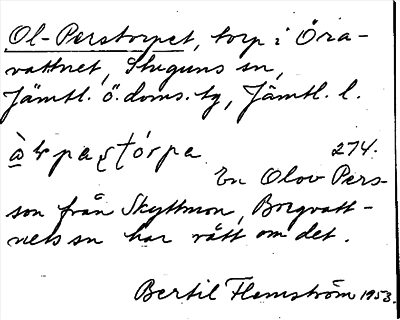 Ol-Perstorpet, torp i Öra-
vattnet, Stuguns sn,
Jämtl. ö. doms. tg, Jämtl. l.
274.
En Olov Pers-
son från Skyttmon, Borgvatt-
nets sn har rått om det.
Bertil Flemström 1953.